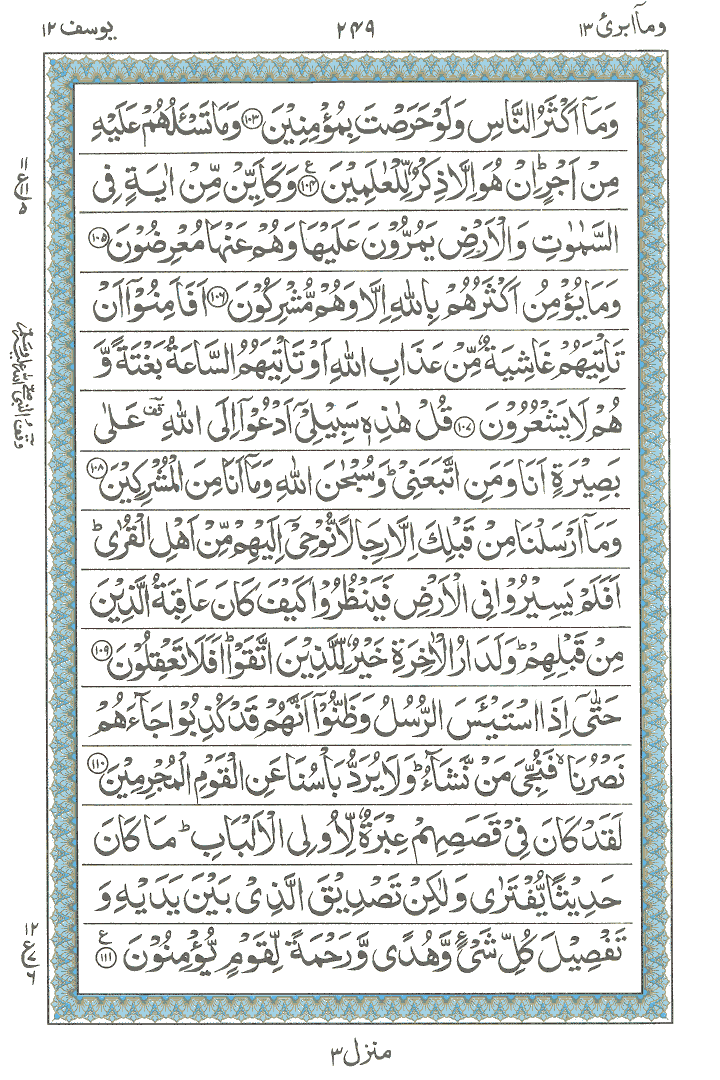 وماۤابرئ ۱۳
۲۴۹
يوسف ۱۲
وَمَاۤ اَكْثَرُ النَّاسِ وَلَوْ حَرَصْتَ بِمُؤْمِنِيْنَ ۝۱۰۳ وَمَا تَسْـَٔلُهُمْ عَلَيْهِ
مِنْ اَجْرٍ ؕ اِنْ هُوَ اِلَّا ذِكْرٌ لِّلْعٰلَمِيْنَ ۝۱۰۴ ع وَكَاَيِّنْ مِّنْ اٰيَةٍ فِى
السَّمٰوٰتِ وَالْاَرْضِ يَمُرُّوْنَ عَلَيْهَا وَهُمْ عَنْهَا مُعْرِضُوْنَ ۝۱۰۵
وَمَا يُؤْمِنُ اَكْثَرُهُمْ بِاللّٰهِ اِلَّا وَهُمْ مُّشْرِكُوْنَ ۝۱۰۶ اَفَاَمِنُوْۤا اَنْ
تَاْتِيَهُمْ غَاشِيَةٌ مِّنْ عَذَابِ اللّٰهِ اَوْ تَاْتِيَهُمُ السَّاعَةُ بَغْتَةً وَّ
هُمْ لَا يَشْعُرُوْنَ ۝۱۰۷ قُلْ هٰذِهٖ سَبِيْلِىْۤ اَدْعُوْۤا اِلَى اللّٰهِ ࣞ عَلٰى
بَصِيْرَةٍ اَنَا وَمَنِ اتَّبَعَنِىْ ؕ وَسُبْحٰنَ اللّٰهِ وَمَاۤ اَنَا مِنَ الْمُشْرِكِيْنَ ۝۱۰۸
وَمَاۤ اَرْسَلْنَا مِنْ قَبْلِكَ اِلَّا رِجَالًا نُّوْحِىْۤ اِلَيْهِمْ مِّنْ اَهْلِ الْقُرٰى ؕ
اَفَلَمْ يَسِيْرُوْا فِى الْاَرْضِ فَيَنْظُرُوْا كَيْفَ كَانَ عَاقِبَةُ الَّذِيْنَ
مِنْ قَبْلِهِمْ ؕ وَلَدَارُ الْاٰخِرَةِ خَيْرٌ لِّلَّذِيْنَ اتَّقَوْا ؕ اَفَلَا تَعْقِلُوْنَ ۝۱۰۹
حَتّٰۤى اِذَا اسْتَيْـَٔسَ الرُّسُلُ وَظَنُّوْۤا اَنَّهُمْ قَدْ كُذِبُوْا جَآءَهُمْ
نَصْرُنَا ۙ فَنُجِّىَ مَنْ نَّشَآءُ ؕ وَلَا يُرَدُّ بَاْسُنَا عَنِ الْقَوْمِ الْمُجْرِمِيْنَ ۝۱۱۰
لَقَدْ كَانَ فِىْ قَصَصِهِمْ عِبْرَةٌ لِّاُولِى الْاَلْبَابِ ؕ مَا كَانَ
حَدِيْثًا يُّفْتَرٰى وَلٰكِنْ تَصْدِيْقَ الَّذِىْ بَيْنَ يَدَيْهِ وَ
تَفْصِيْلَ كُلِّ شَىْءٍ وَّهُدًى وَّرَحْمَةً لِّقَوْمٍ يُّؤْمِنُوْنَ ۝۱۱۱ ع
۱۱
ع ۱۱
۵
وقف النبي صلى الله عليه وسلم
۱۲
ع ۷
۶
منزل ۳